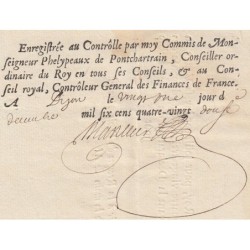 Enregistrée au Contrôlle par moy Commis de Mon-
seigneur Phelypeaux de Pontchartrain, Conseiller or-
dinaire du Roy en tous ses Conseils, & au Con-
seil royal, Contrôleur General des Finances de France.
A Dijon le vingt jour d
decembre
mil six cens quatre-vingt douze